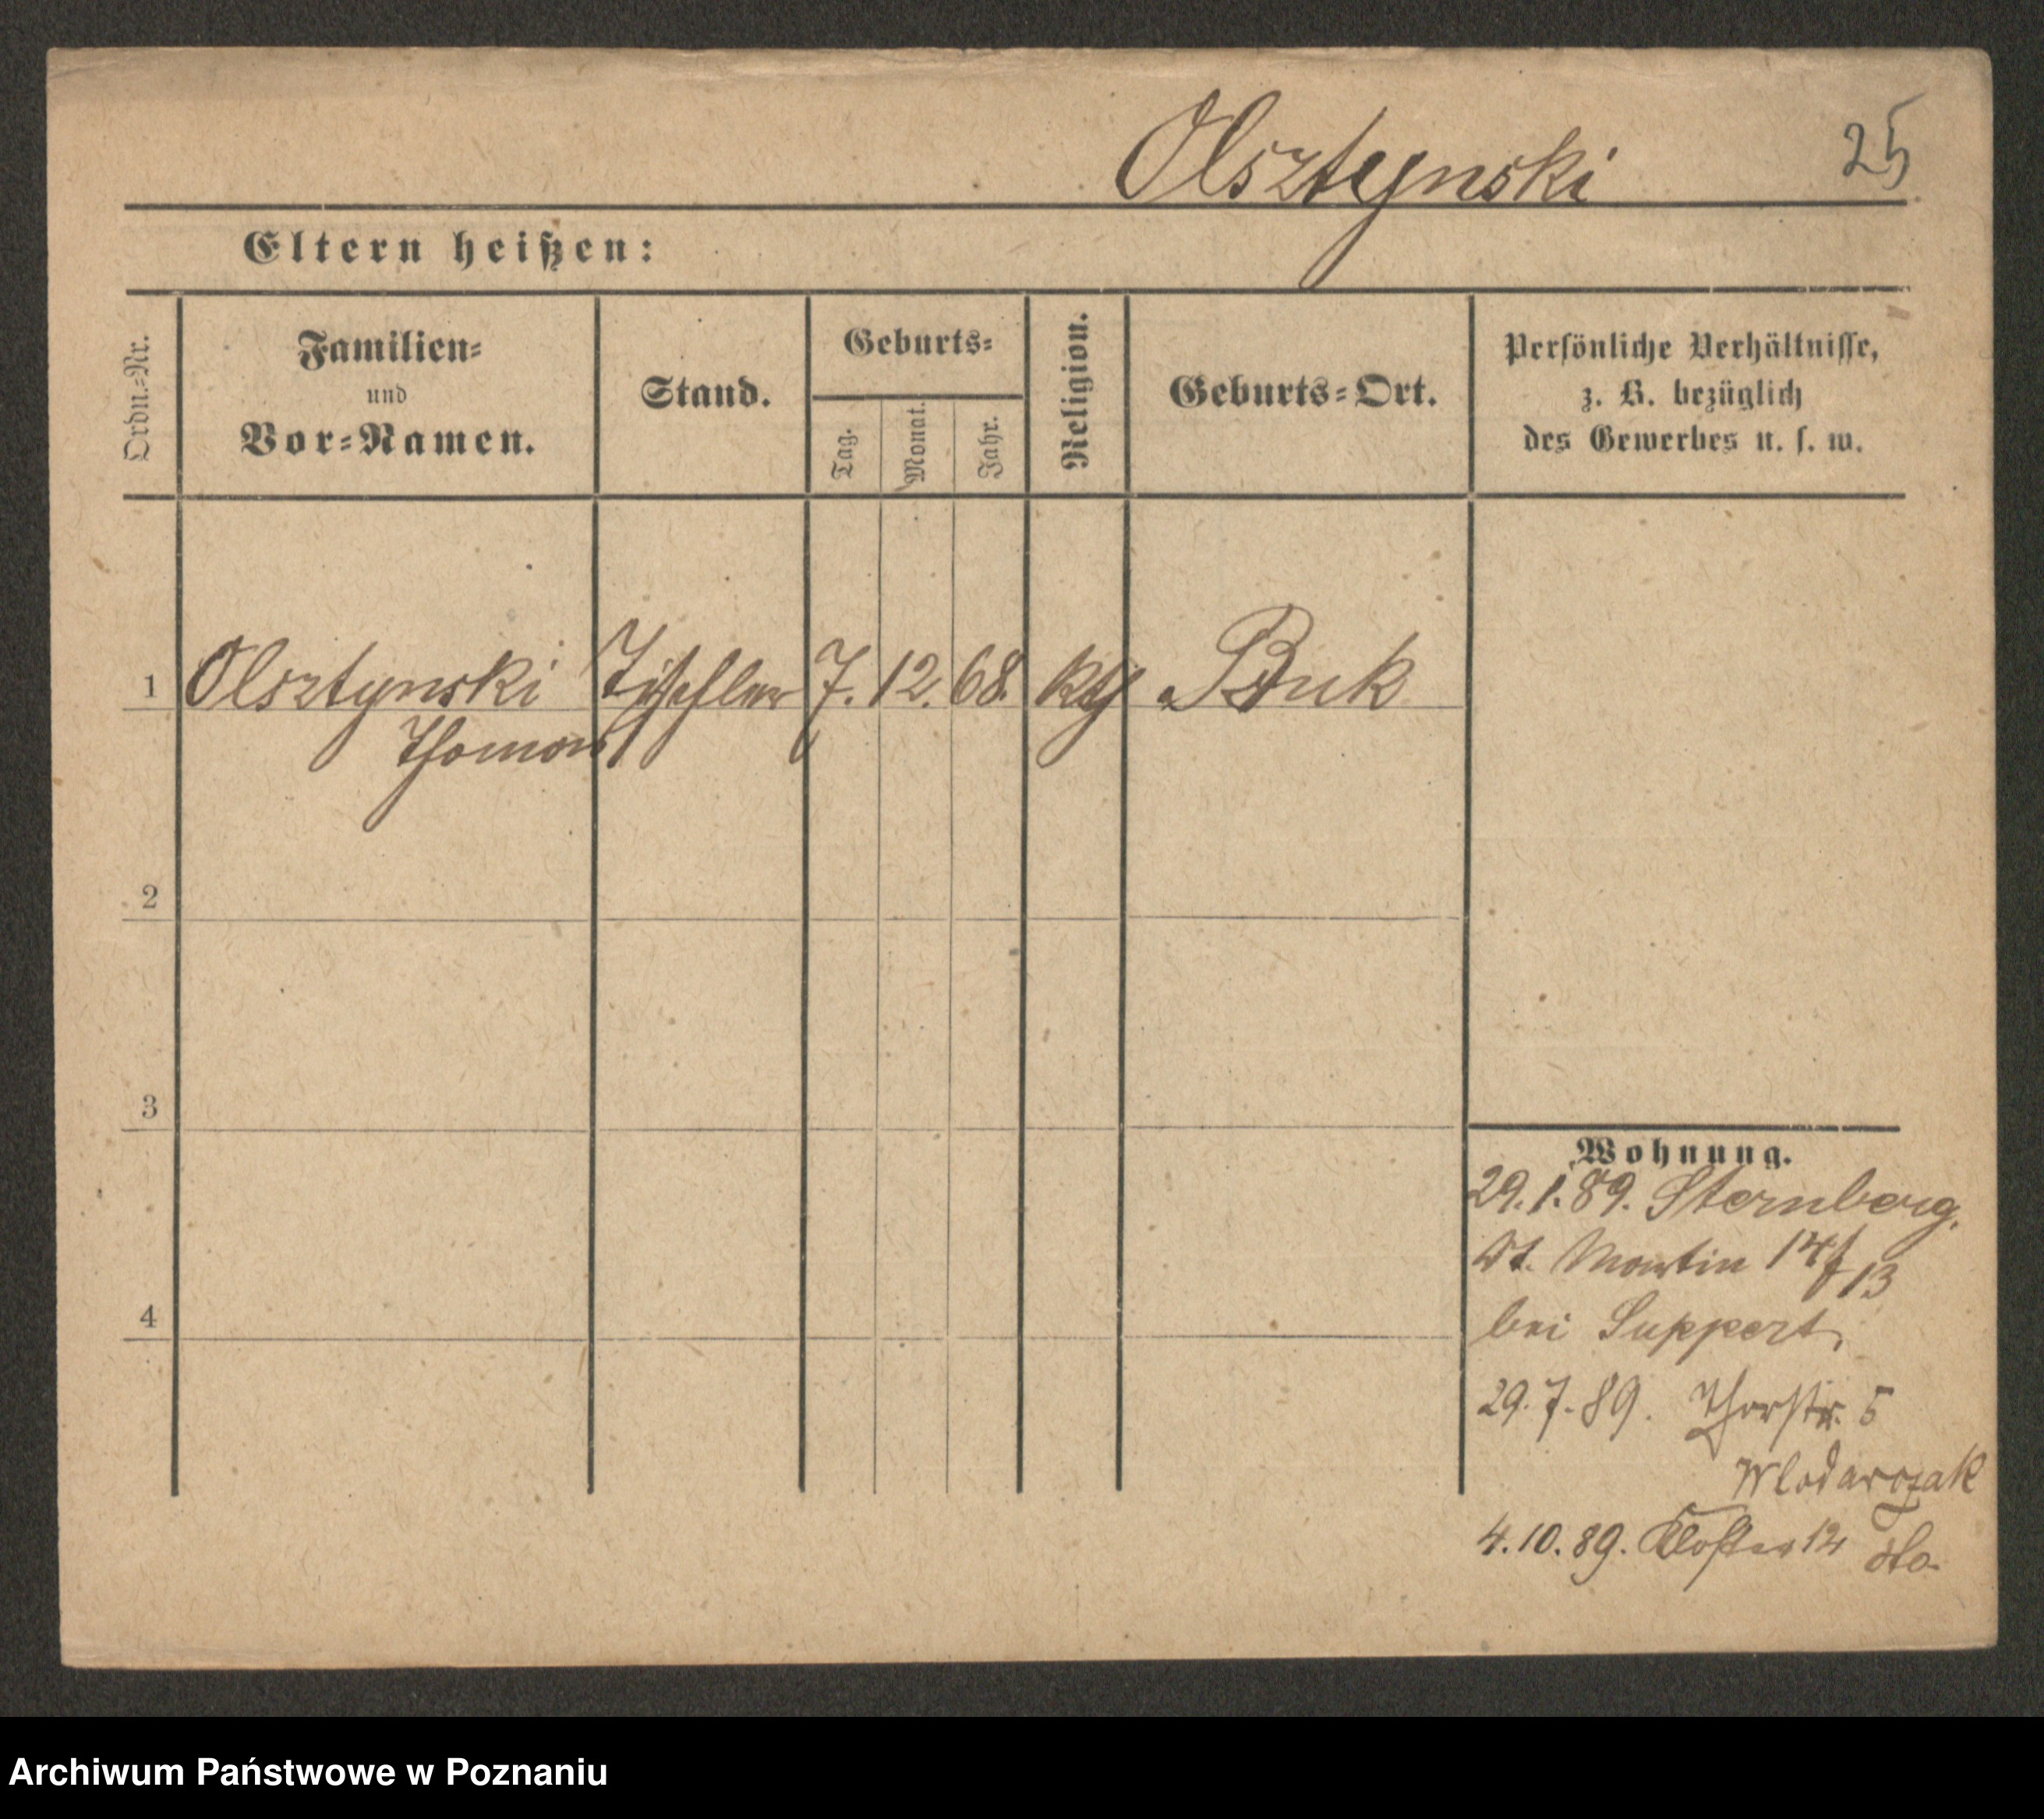 Olsztynski 25
Eltern heißen:
Ordn.-Nr.
Familien-
und
Vor-Namen.
Stand.
Geburts-
Tag.
Monat.
Jahr.
Religion.
Geburts-Ort.
Persönliche Verhältnisse,
z. B. bezüglich
des Gewerbes u. s. w.
1 Olsztynski Tischler 7. 12. 68. kth Buk
Thomas
2
3
4
Wohnung.
29.1.89. Sternberg.
St. Martin 14/13
bei Suppert,
29.7.89. Thorstr. 5
Wlodarczak
4.10.89. Kloster 12 dto.
Archiwum Państwowe w Poznaniu